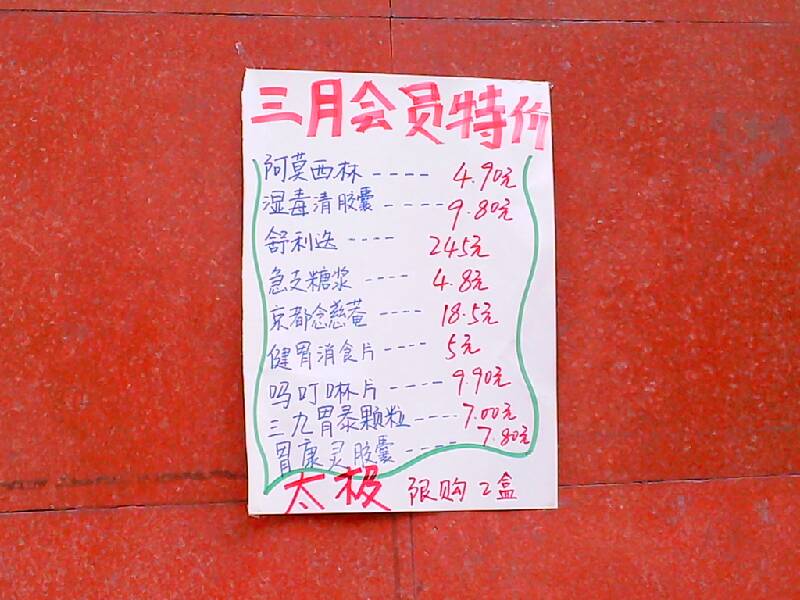 三月会员特价
阿莫西林 ---- 4.90元
湿毒清胶囊 ---- 9.80元
舒利迭 ---- 245元
急支糖浆 ---- 4.8元
京都念慈菴 ---- 18.5元
健胃消食片 ---- 5元
吗叮啉片 ---- 9.90元
三九胃泰颗粒 ---- 7.00元
胃康灵胶囊 ---- 7.80元
太极 限购2盒